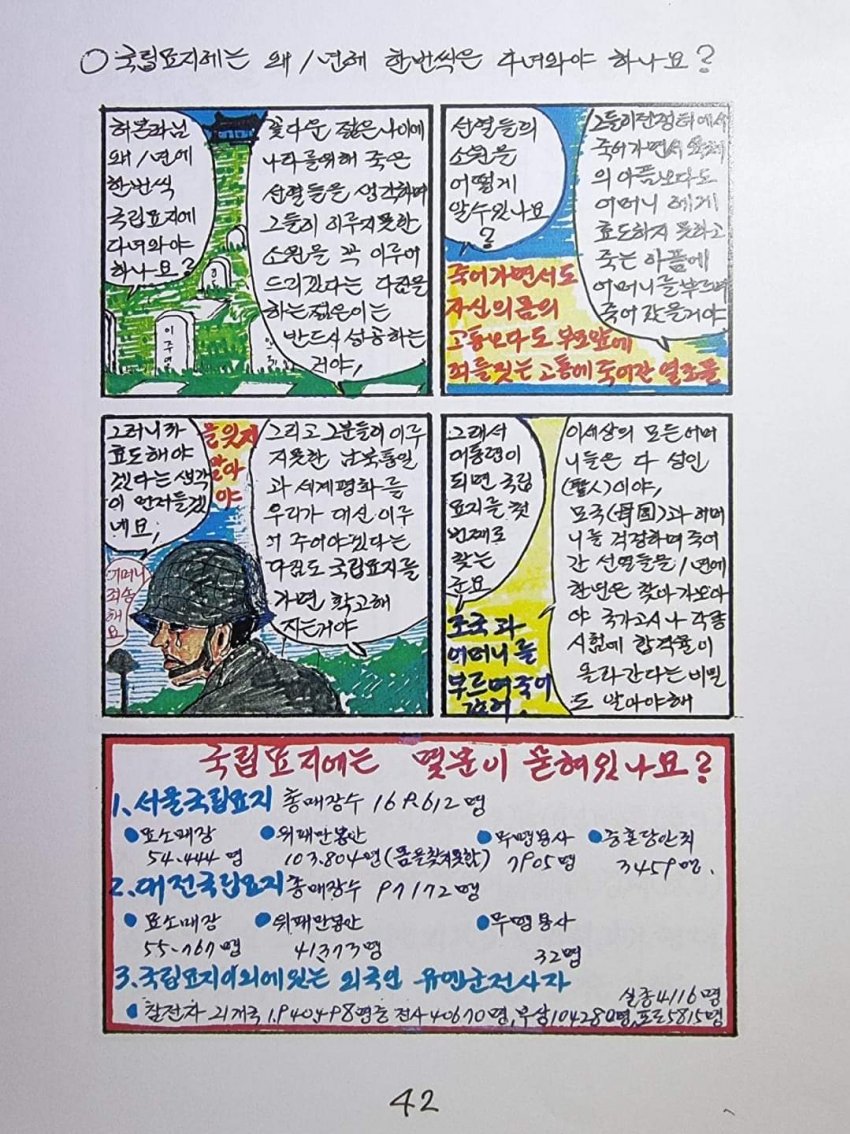 ○ 국립묘지에는 왜 1년에 한번씩은 다녀와야 하나요?
허본좌님
왜 1년에
한번씩
국립묘지에
다녀와야
하나요?
꽃다운 젊은 나이에
나라를 위해 죽은
선열들을 생각하며
그들이 이루지못한
소원을 꼭 이루어
드리겠다는 다짐을
하는 젊은이는
반드시 성공하는
거야,
이주영
선열들의
소원을
어떻게
알수있나요
?
그들이 전쟁터에서
죽어가면서 육체
의 아픔보다도
어머니에게
효도하지 못하고
죽는 아픔에
어머니를 부르며
죽어 갔을거야
죽어가면서도
자신의 몸의
고통보다도 부모앞에
죄를 짓는 고통에 죽어간 영혼들
을 잊지
말아
야
그러니까
효도해야
겠다는 생각
이 먼저들겠
네요,
그리고 그분들이 이루
지못한 남북통일
과 세계평화를
우리가 대신 이루
어 주어야겠다는
다짐도 국립묘지를
가면 확고해
지는거야
어머니
죄송
해요
그래서
대통령이
되면 국립
묘지를 첫
번째로
찾는
군요
이세상의 모든 어머
니들은 다 성인
(聖人)이야,
모국(母国)과 어머
니를 걱정하며 죽어
간 선열들을 1년에
한번은 찾아가보아
야 국가고시나 각종
시험에 합격율이
올라간다는 비밀
도 알아야해
조국과
어머니를
부르며죽어
갔어
국립묘지에는 몇분이 묻혀있나요?
1. 서울국립묘지 총매장수 169.612명
●묘소매장 ●위패만봉안 ●무명용사 ●충혼당안치
54.444명 103.804명(몸을찾지못함) 7905명 3459명.
2. 대전국립묘지 총매장수 97172명
●묘소매장 ●위패만봉안 ●무명용사
55.767명 41373명 32명
3. 국립묘지이외에있는 외국인 유엔군전사자
실종4116명
●참전자 21개국 1.940498명중 전사40670명, 부상104280명, 포로5815명
42